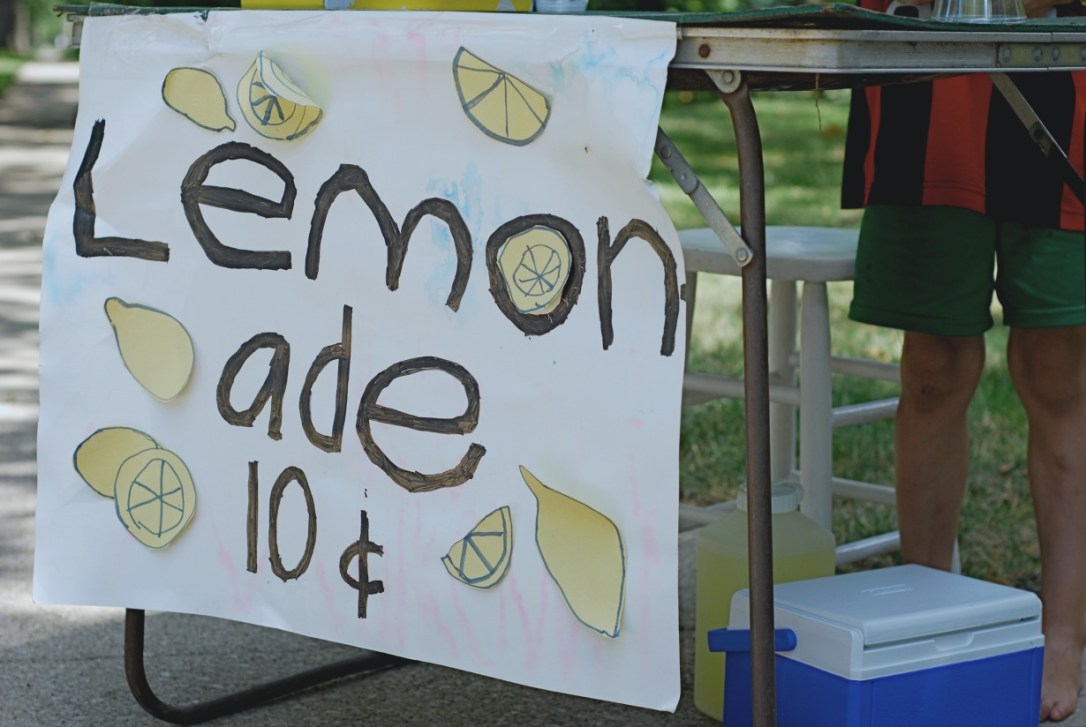 Lemon
ade
10¢